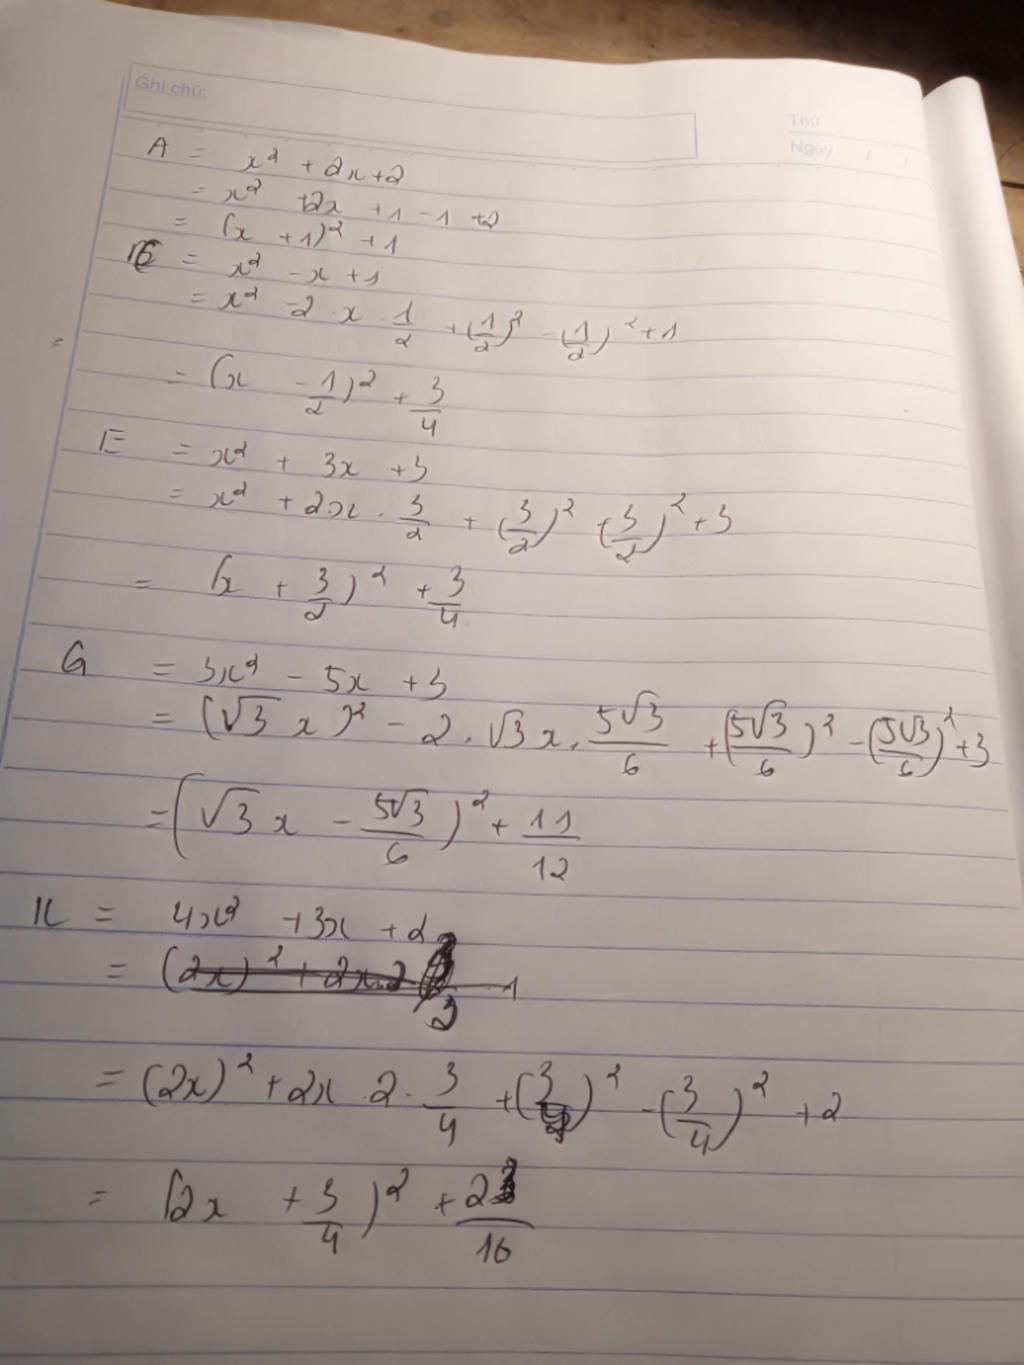 Ghi chú:
Thứ
Ngày / /
A = x² + 2x + 2
= x² + 2x + 1 - 1 + 2
= (x + 1)² + 1
C = x² - x + 1
= x² - 2 · x · 1/2 + (1/2)² - (1/2)² + 1
=
= (x - 1/2)² + 3/4
E = x² + 3x + 3
= x² + 2x · 3/2 + (3/2)² - (3/2)² + 3
= (x + 3/2)² + 3/4
G = 3x² - 5x + 3
= (√3 x)² - 2 · √3x · 5√3/6 + (5√3/6)² - (5√3/6)² + 3
= (√3 x - 5√3/6)² + 11/12
K = 4x² + 3x + 2
= (2x)² + 2x · 2 · 3/4 + (3/4)² - (3/4)² + 2
= (2x + 3/4)² + 23/16